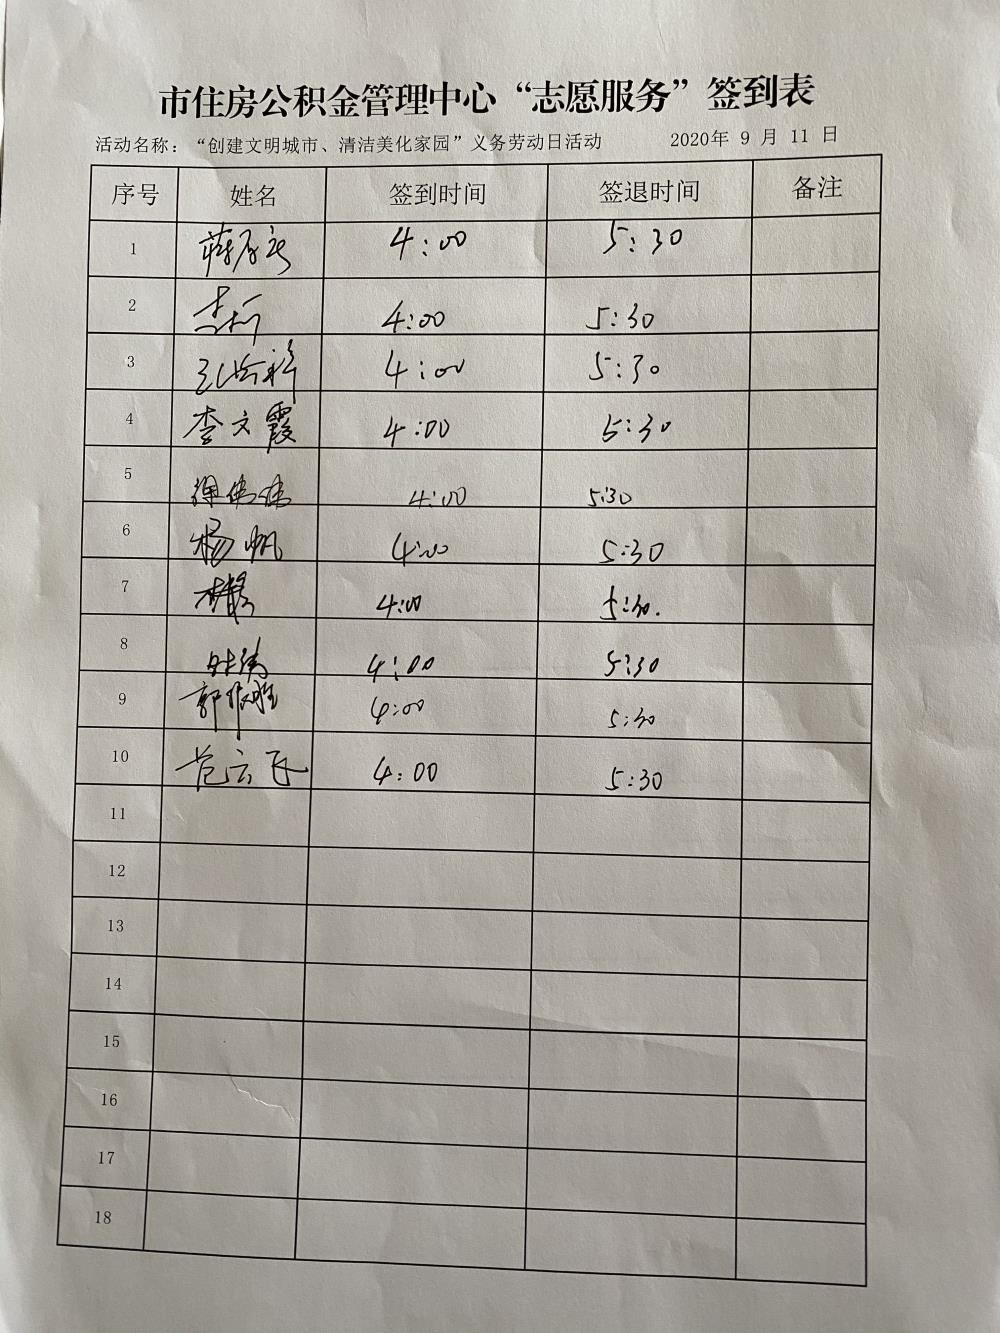 市住房公积金管理中心“志愿服务”签到表
活动名称：“创建文明城市、清洁美化家园”义务劳动日活动 2020年 9 月 11 日
序号 姓名 签到时间 签退时间 备注
1 4:00 5:30
2 4:00 5:30
3 4:00 5:30
4 李文霞 4:00 5:30
5 4:00 5:30
6 杨帆 4:00 5:30
7 4:00 5:30.
8 4:00 5:30
9 4:00 5:30
10 范云飞 4:00 5:30
11
12
13
14
15
16
17
18